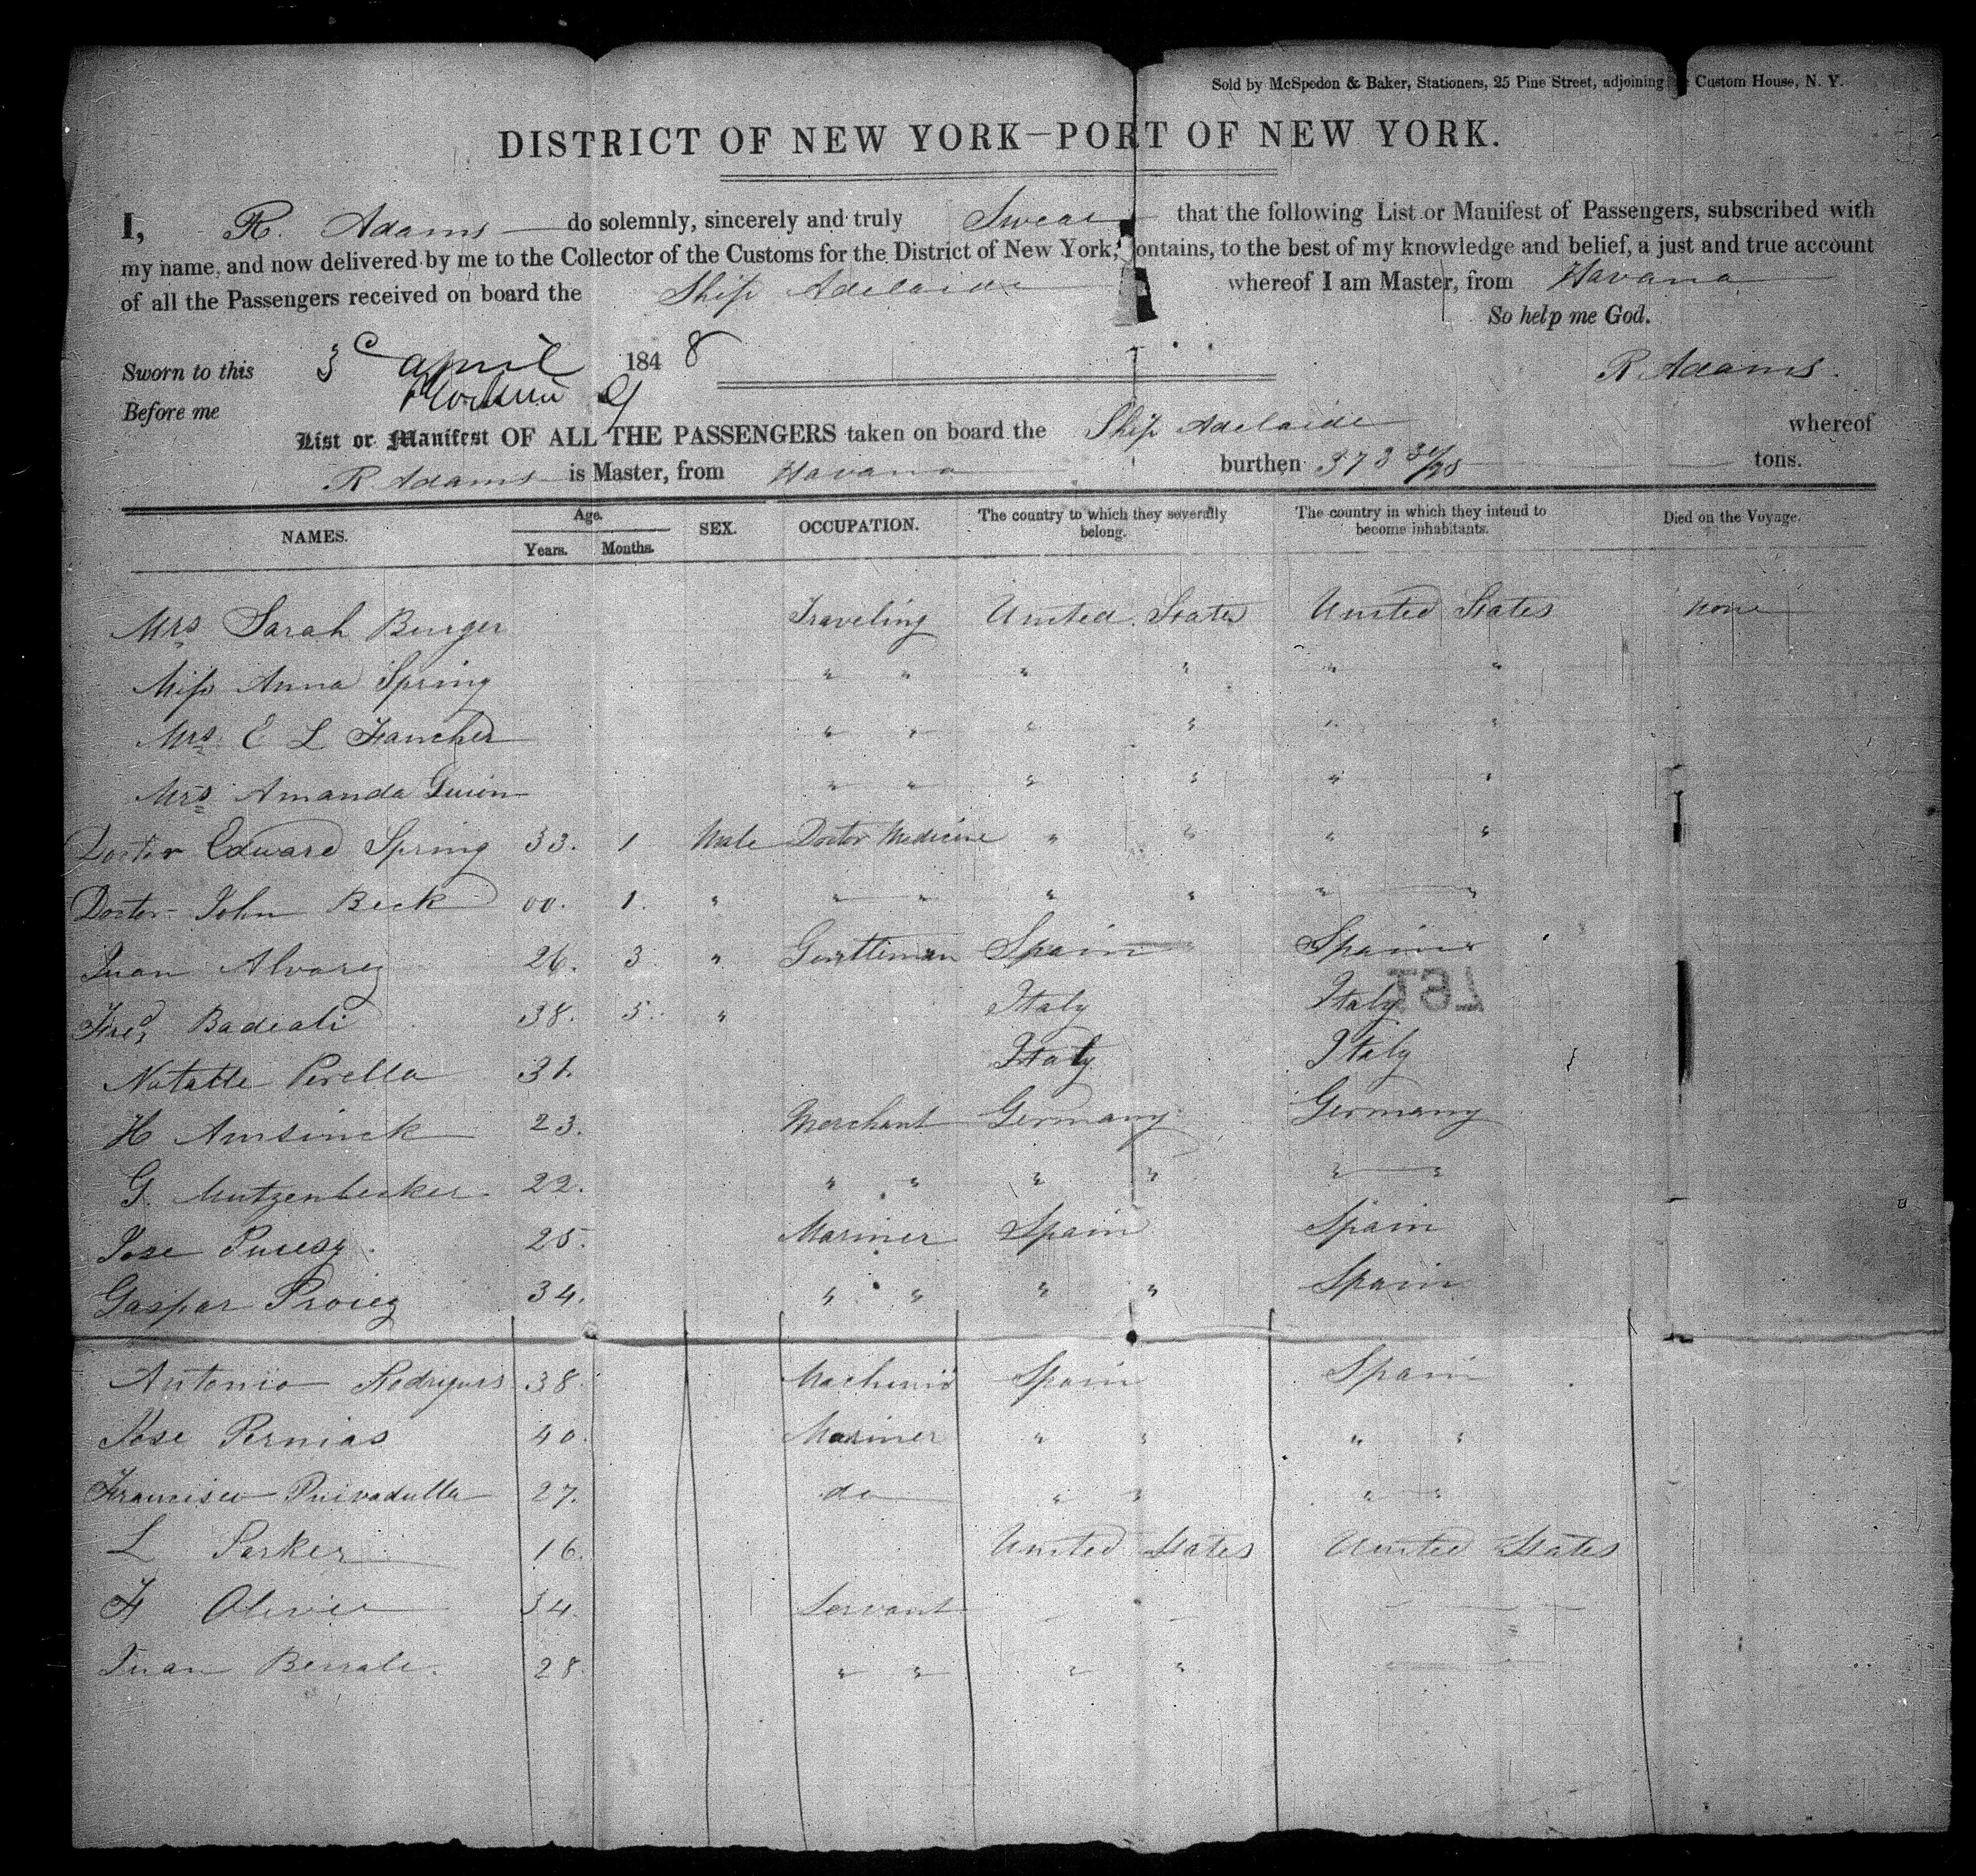 Sold by McSpedon & Baker, Stationers, 25 Pine Street, adjoining Custom House, N. Y.
DISTRICT OF NEW YORK—PORT OF NEW YORK.
I, R. Adams do solemnly, sincerely and truly Swear that the following List or Manifest of Passengers, subscribed with
my name, and now delivered by me to the Collector of the Customs for the District of New York, contains, to the best of my knowledge and belief, a just and true account
of all the Passengers received on board the Ship Adelaide whereof I am Master, from Havana
So help me God.
Sworn to this 3 April 1848
R Adams.
Before me
List or Manifest OF ALL THE PASSENGERS taken on board the Ship Adelaide whereof
R Adams is Master, from Havana burthen 373 tons.
NAMES. Age. Years. Months. SEX. OCCUPATION. The country to which they severally belong. The country in which they intend to become inhabitants. Died on the Voyage.
Mrs Sarah Burger Traveling United States United States none
Miss Anna Spring " " " " " "
Mrs E L Fancher " " " " " "
Mrs Amanda " " " " " "
Doctor Edward Spring 33. 1 Male Doctor Medicine " " " "
Doctor John Beck 00. 1. " " " " " " "
Juan Alvarez 26. 3 " Gentleman Spain Spain
Badiali 38. 5. " Italy Italy
Perella 31. Italy Italy
H Amsinck 23. Merchant Germany Germany
G. Mutzenbecker 22. " " " " " "
Jose 25. Mariner Spain Spain
Gaspar 34. " " " " Spain
Antonio 38. Spain Spain
Jose Pernias 40. Mariner " " " "
Francisco 27. do " " " "
L Parker 16. United States United States
F 34. Servant
Juan 28 " " " "